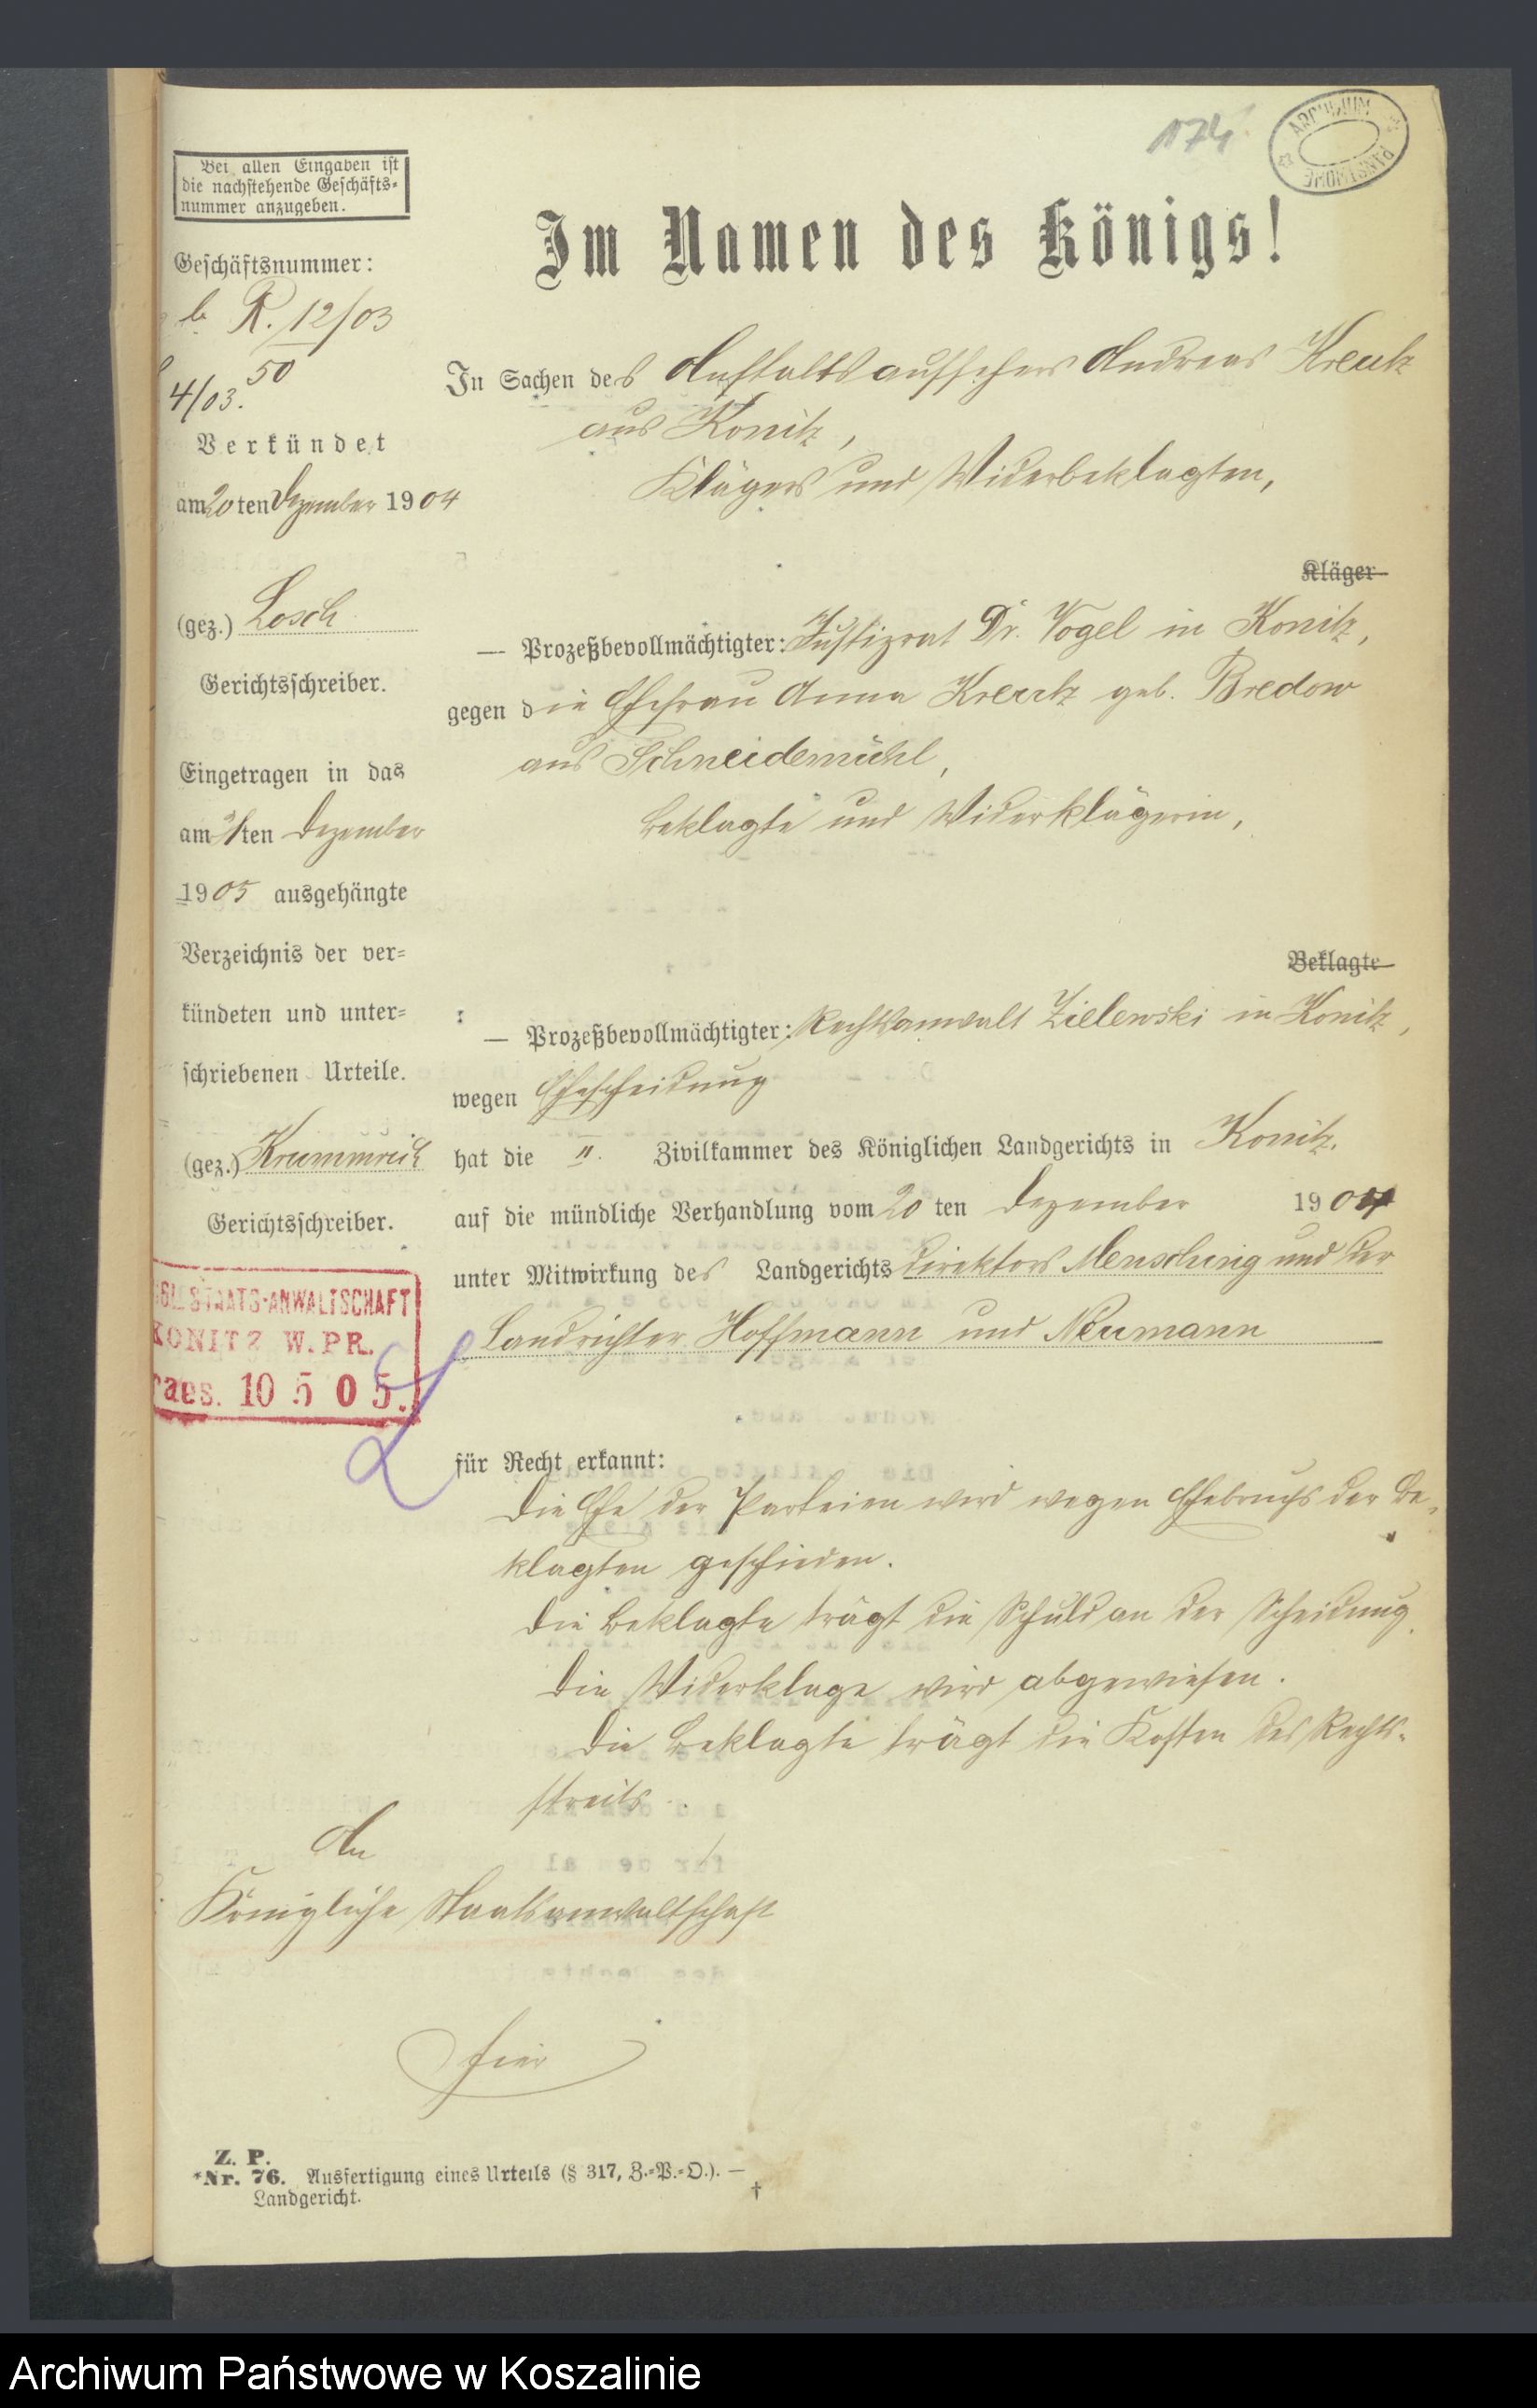 174
ARCHIWUM PAŃSTWOWE
Bei allen Eingaben ist
die nachstehende Geschäfts-
nummer anzugeben.
Geschäftsnummer:
R. 12/03
50
4/03.
Verkündet
am 20ten Dezember 1904
(gez.) Losch
Gerichtsschreiber.
Eingetragen in das
am 21ten Dezember
1905 ausgehängte
Verzeichnis der ver-
kündeten und unter-
schriebenen Urteile.
(gez.) Krummreich
Gerichtsschreiber.
STAATS-ANWALTSCHAFT
KONITZ W. PR.
raes. 10 5 05.
Im Namen des Königs!
In Sachen des Anstaltsaufsehers Andreas Kreutz
aus Konitz,
Klägers und Widerbeklagten,
Kläger
— Prozeßbevollmächtigter: Justizrat Dr. Vogel in Konitz,
gegen die Ehefrau Anna Kreutz geb. Bredow
aus Schneidemühl,
Beklagte und Widerklägerin,
Beklagte
— Prozeßbevollmächtigter: Rechtsanwalt Zielewski in Konitz,
wegen Ehescheidung
hat die II. Zivilkammer des Königlichen Landgerichts in Konitz.
auf die mündliche Verhandlung vom 20 ten Dezember 1904
unter Mitwirkung des Landgerichtsdirektors Mensching und der
Landrichter Hoffmann und Neumann
für Recht erkannt:
Die Ehe der Parteien wird wegen Ehebruchs der Be-
klagten geschieden.
Die Beklagte trägt die Schuld an der Scheidung.
Die Widerklage wird abgewiesen.
Die Beklagte trägt die Kosten des Rechts-
streits.
An
Königliche Staatsanwaltschaft
hier
Z. P.
*Nr. 76. Ausfertigung eines Urteils (§ 317, Z.-P.-O.). —
Landgericht.
†
Archiwum Państwowe w Koszalinie